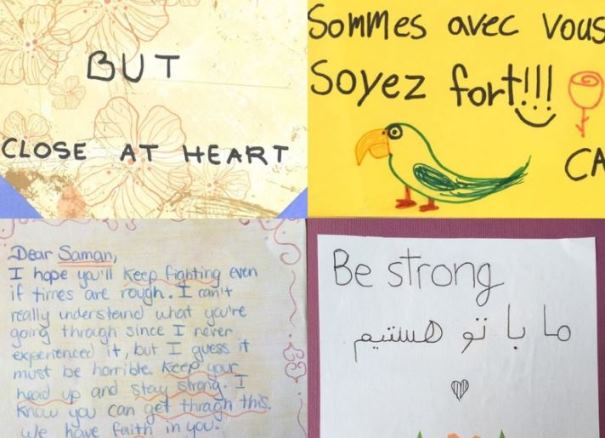 BUT
CLOSE AT HEART
Sommes avec vous
Soyez fort!!!
CA
Dear Saman,
I hope you'll keep fighting even
if times are rough. I can't
really understand what you're
going through since I never
experienced it, but I guess it
must be horrible. Keep your
head up and stay strong. I
know you can get through this.
We have faith in you.
Be strong
ما با تو هستیم